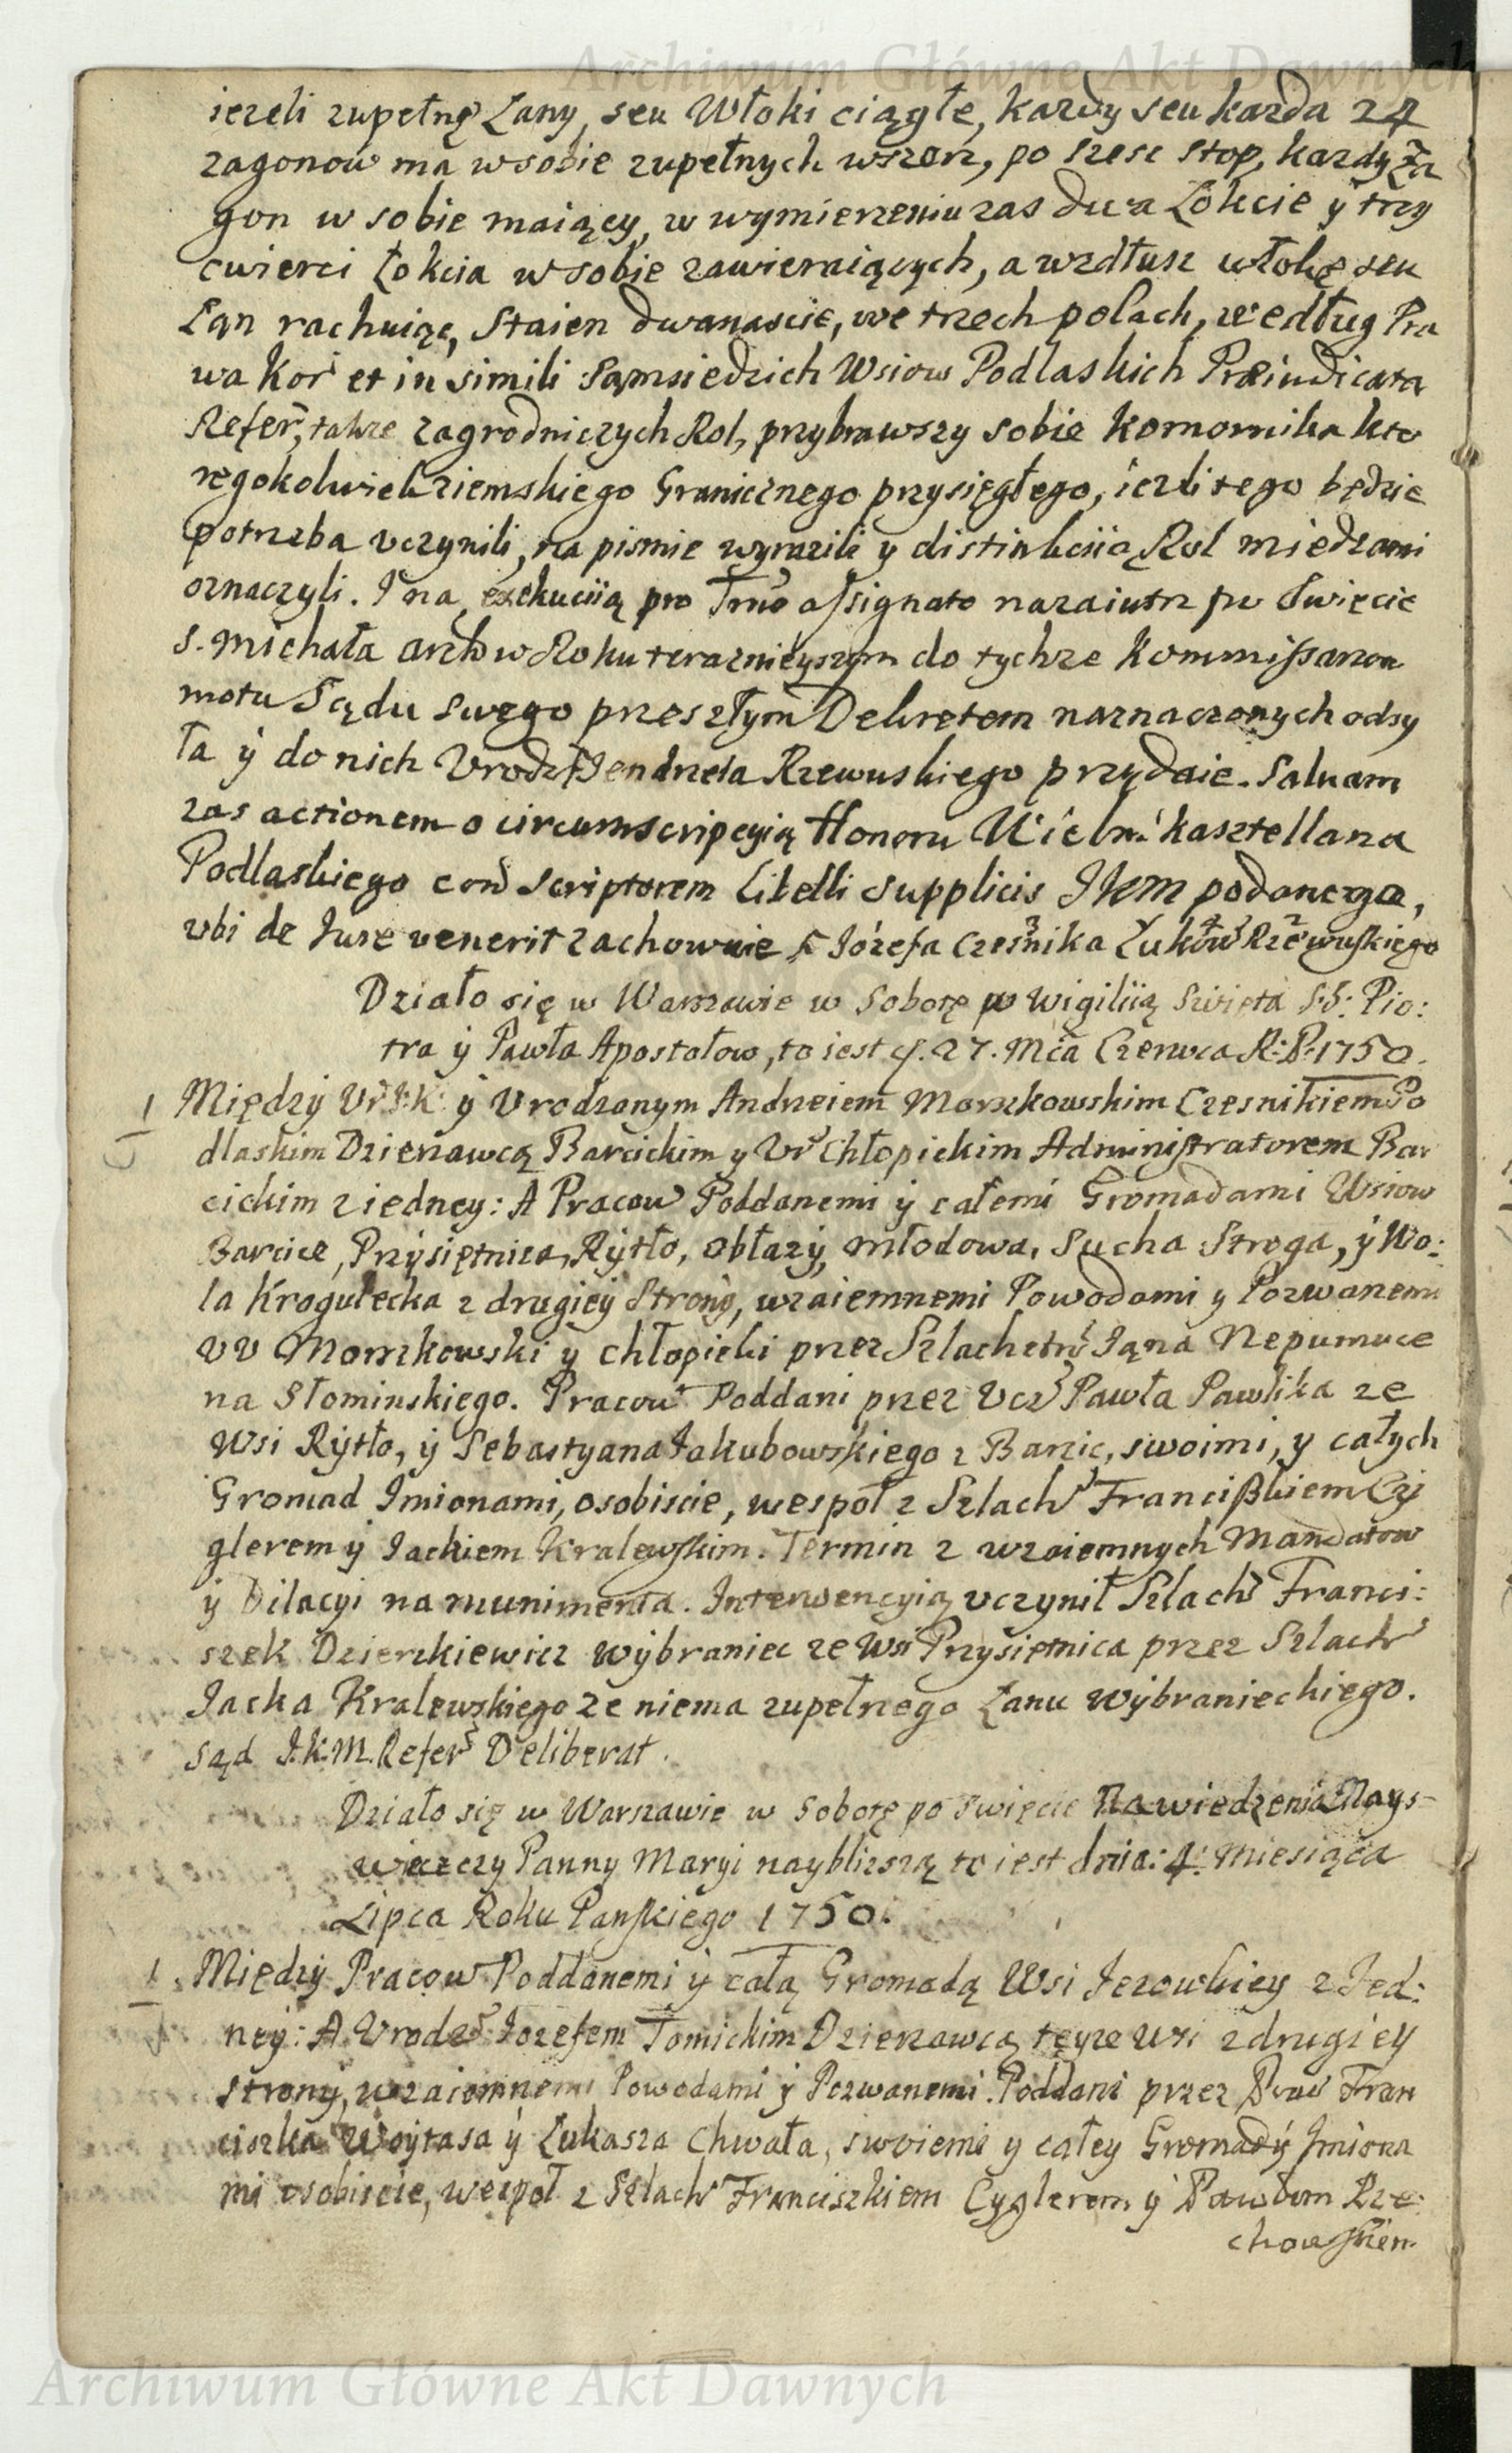 Archiwum Główne Akt Dawnych
iezeli zupełnę Łany, seu Włoki ciągłe, kazdy seu kazda 24
zagonow ma w sobie zupełnych wszerz, po szesc stop, kazdy za
gon w sobie maiący, w wymierzeniu zas dwa Łokcie y trzy
cwierci Łokcia w sobie zawieraiących, a wzdłusz włokę seu
Łan rachuiąc, Staien dwanascie, we trzech polach, według Pra
wa Kor et in simili Sąmsiedzich Wsiow Podlaskich Præiudicata
Refer, takze zagrodniczych Rol, przybrawszy sobie Komornika kto
regokolwiek ziemskiego Granicznego przysięgłego, iezli tego będzie
potrzeba uczynili, na pismie wyrazili y distinkcią Rol miedzami
oznaczyli. I na exekuciią pro Tmo assignato nazaiutrz po Swięcie
S. Michała Arch w Roku teraznieyszym do tychze Kommissarzow
motu Sądu swego przeszłym Dekretem naznaczonych odsy
ła ÿ do nich Urodz Jendrzeia Rzewuskiego przydaie. Salvam
zas actionem o circumscripcyią Honoru Wielm Kasztellana
Podlaskiego con Scriptorem Libelli supplicis Jkm podanego,
ubi de Iure venerit zachowuie Józefa Czesnika Łukow Rzewuskiego
Działo się w Warszawie w Sobotę w wigiliią Swięta S:S: Pio:
tra ÿ Pawła Apostołow, to iest d. 27. Mca Czerwca R: P: 1750.
1 Między Ur I.K. ÿ Urodzonym Andrzeiem Morzkowskim Czesnikiem Po
dlaskim Dzierzawcą Barcickim y Ur Chłopickim Administratorem Bar
cickim z iedney: A Pracow Poddanemi ÿ całemi Gromadami Wsiow
Barcice, Przysiętnica, Rytło, Obłazÿ, Młodowa, Sucha Stroga, ÿ Wo:
la Krogulecka z drugiey Stronÿ, wzaiemnemi Powodami y Pozwanemi
UU Morzkowski y Chłopicki przez Szlachetn Jąna Nepumuce
na Słominskiego. Pracow Poddani przez Ucz Pawła Pawlika ze
Wsi Rÿtło, ÿ Sebastyana Jakubowskiego z Barcic, swoimi, y całych
Gromad Imionami, osobiscie, wespoł z Szlach Franciszkiem Cÿ
glerem ÿ Jackiem Kralewskim. Termin z wzaiemnych Mandatow
ÿ Dilacyi na munimenta. Interwencyią uczynił Szlach Franci:
szek Dzierzkiewicz wÿbraniec ze Wsi Przysietnica przez Szlach
Jacka Kralewskiego ze niema zupełnego Łanu wÿbranieckiego.
Sąd J.K.M. Refer Deliberat.
Działo się w Warszawie w Sobotę po Swięcie Nawiedzenia Nays-
więczy Panny Maryi naybliższą to iest dnia: 4: Miesiąca
Lipca Roku Panskiego 1750.
1. Między Pracow Poddanemi ÿ całą Gromadą Wsi Jezowkiey z Jed:
ney: A Urodz Jozefem Tomickim Dzierzawcą teyze Wsi z drugiey
strony, wzaiemnemi Powodami ÿ Pozwanemi. Poddani przez Prac Fran
ciszka Woytasa ÿ Łukasza Chwała, swoiemi y całey Gromadÿ Imiona
mi osobiscie, wespoł z Szlach Franciszkiem Cyglerem ÿ Pawłem Rze
chowskiem
Archiwum Główne Akt Dawnych